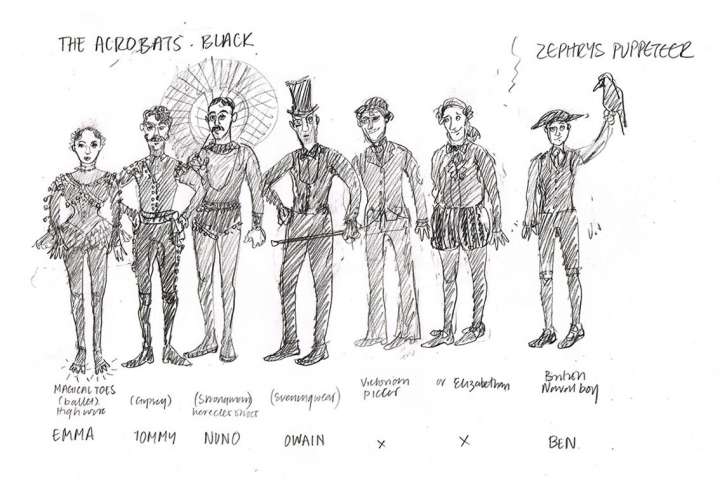 THE ACROBATS. BLACK
ZEPHRYS PUPPETEER
MAGICAL TOES
(ballet)
High wire
(Gypsy)
(Strongman)
(Eveningwear)
Victorian
or Elizabethan
British
Naval boy
EMMA
TOMMY
NUNO
OWAIN
x
x
BEN